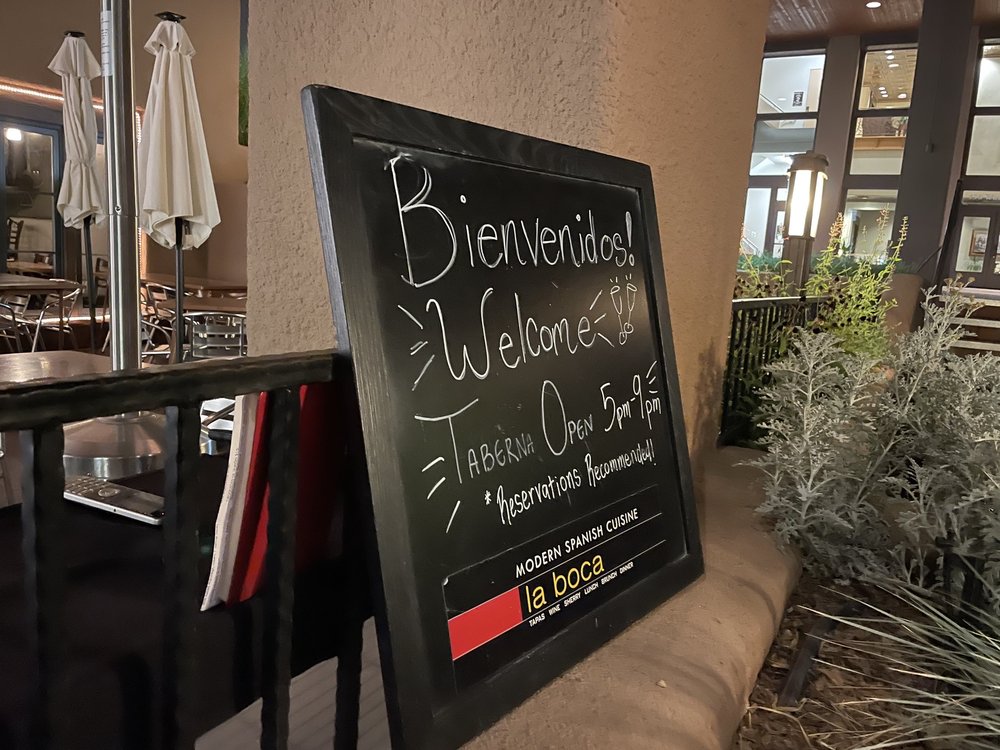 Bienvenidos!
Welcome
TABERNA OPEN 5pm-9pm
*Reservations Recommended!!
MODERN SPANISH CUISINE
la boca
TAPAS WINE SHERRY LUNCH BRUNCH DINNER